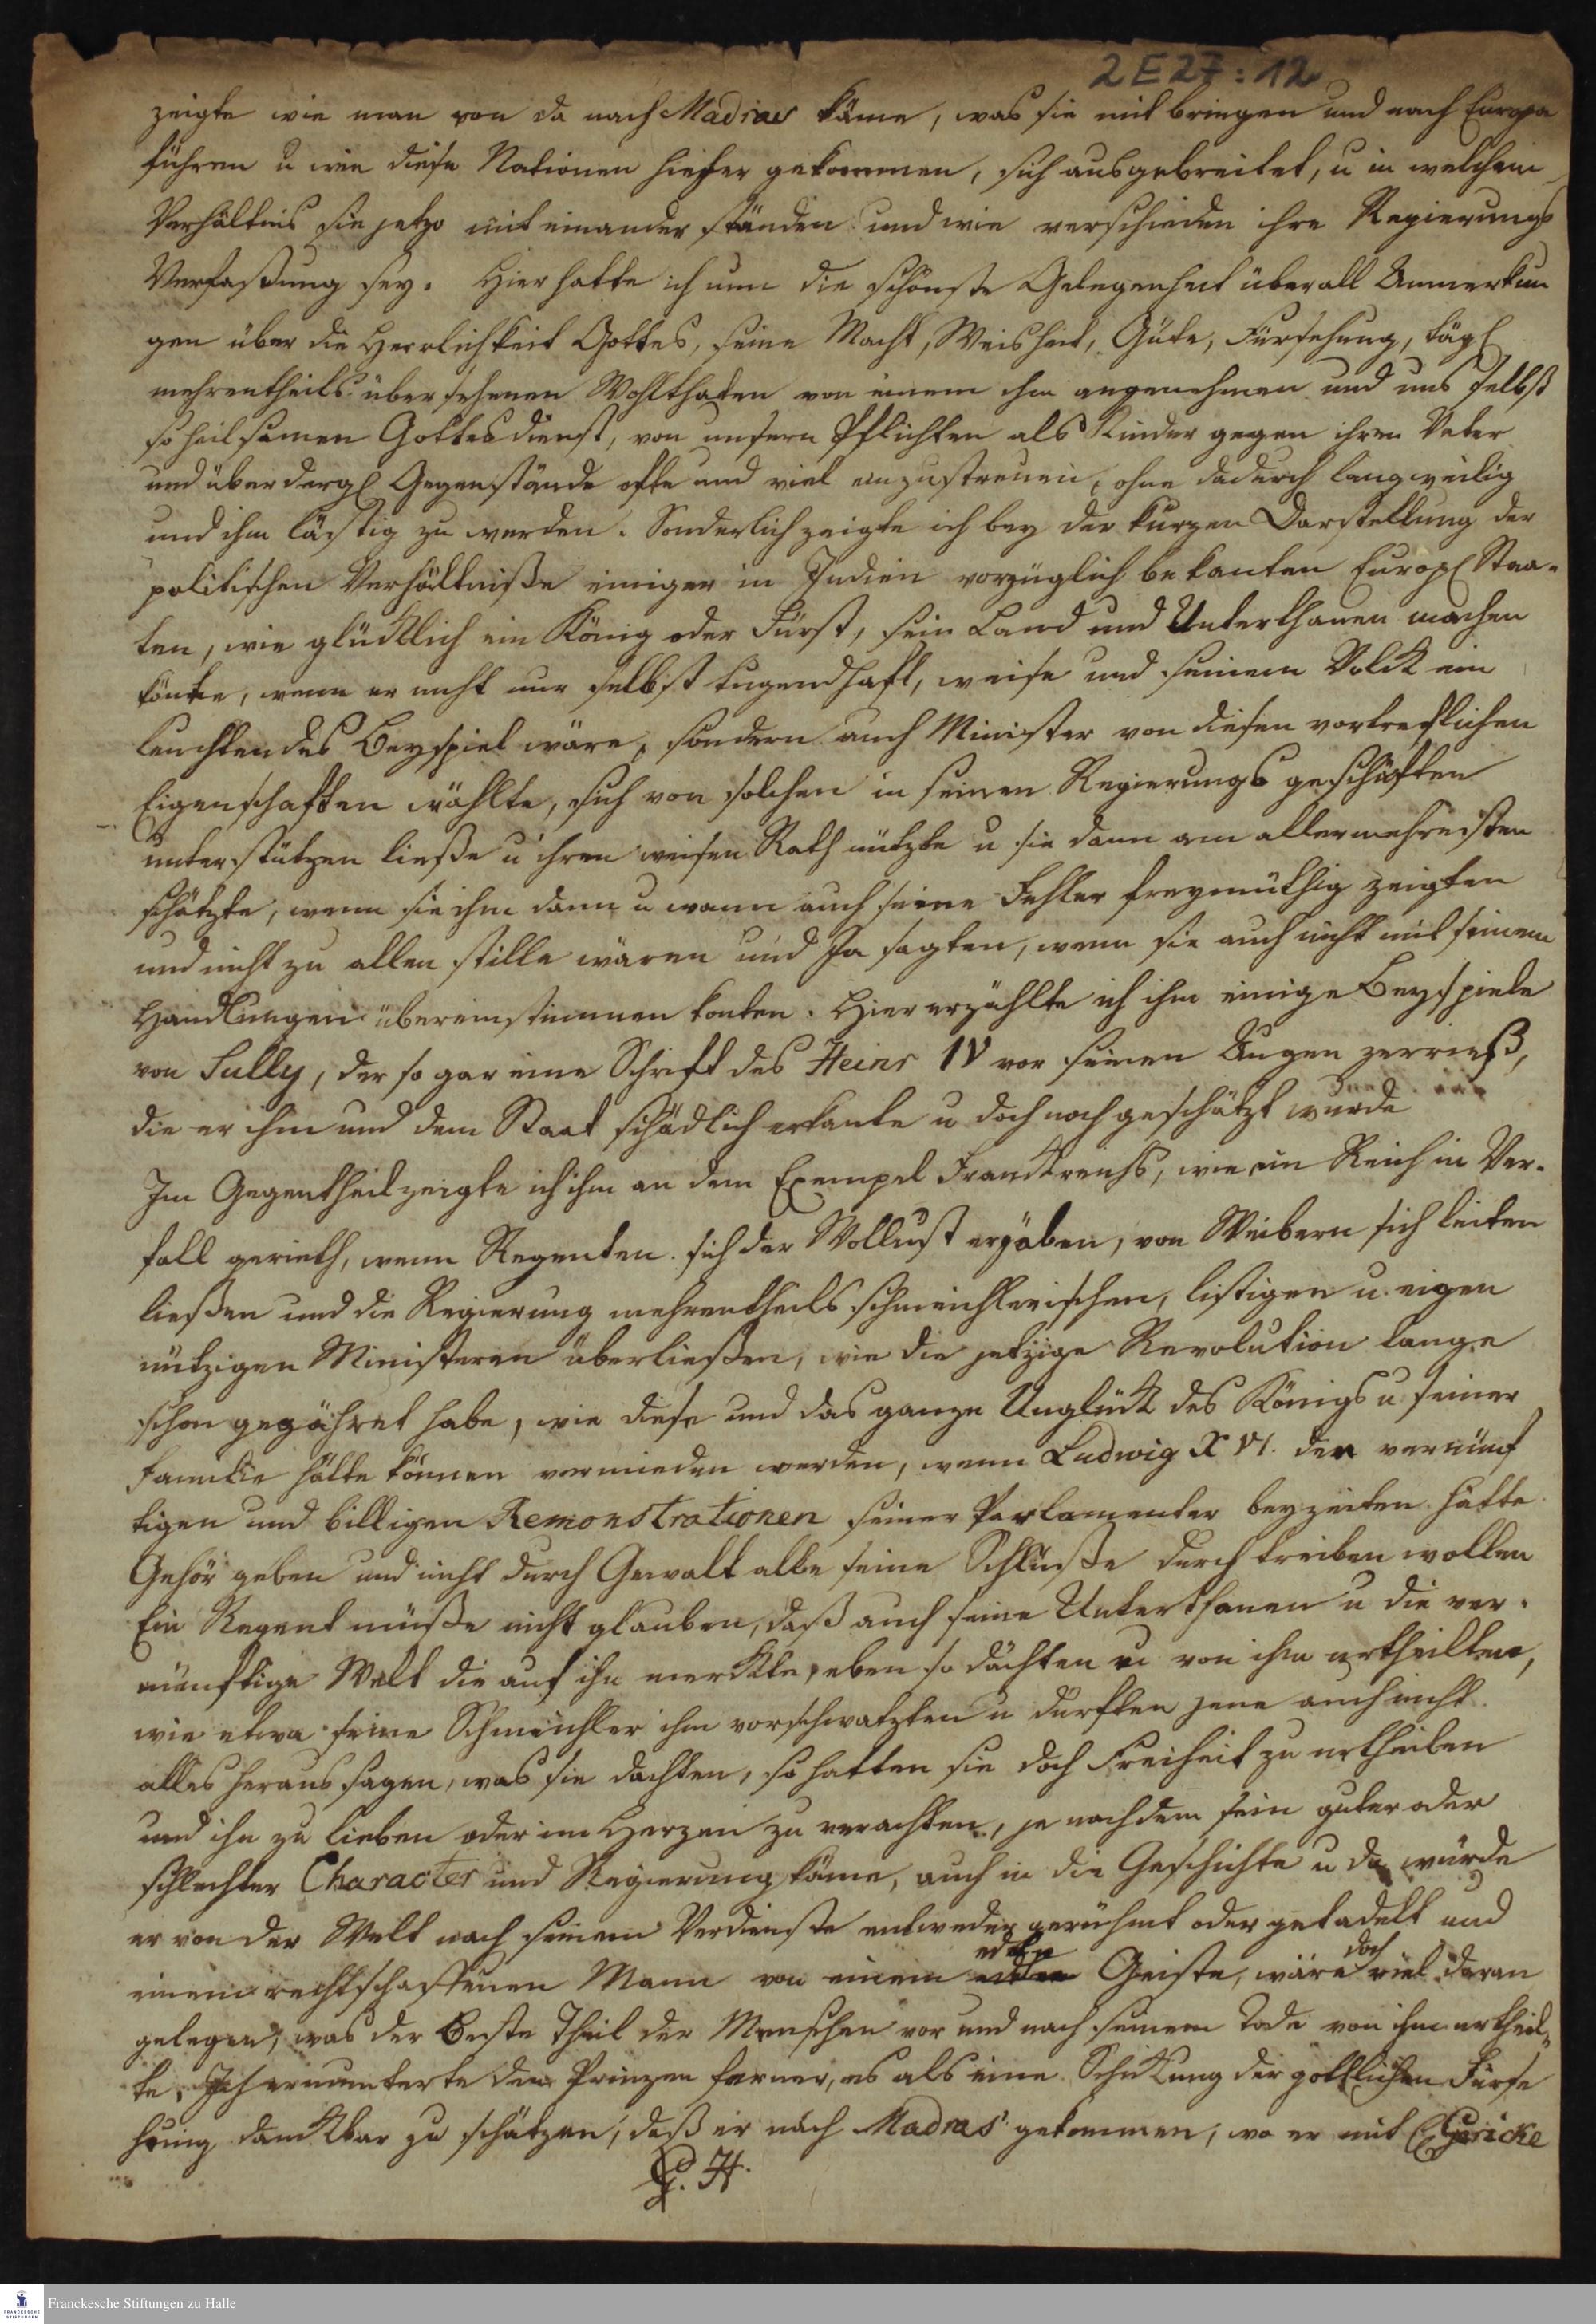 2 E 27 : 12
zeigte wie man von da nach Madras käme, was sie mit bringen und nach Europa
führen u wie diese Nationen hieher gekommen, sich ausgebreitet, u in welchem
Verhältnis sie jetzo mit einander ständen und wie verschieden ihre Regierungs
Verfaßung sey. Hier hatte ich nun die schönste Gelegenheit überall Anmerkun
gen über die Herrlichkeit Gottes, seine Macht, Weisheit, Güte, Fürsehung, tägl
mehrentheils übersehenen Wohlthaten von einem ihm angenehmen und uns selbst
so heilsamen Gottesdienst, von unsern Pflichten als Kinder gegen ihren Vater
und über dergl Gegenstände ofte und viel einzustreuen, ohne dadurch langweilig
und ihm lästig zu werden. Sonderlich zeigte ich bey der kurzen Darstellung der
politischen Verhältniße einiger in Indien vorzüglich bekanten Europl Staa-
ten, wie glücklich ein König oder Fürst, sein Land und Unterthanen machen
könte, wenn er nicht nur selbst tugendhaft, weise und seinem Volck ein
leuchtendes Beyspiel wäre, sondern auch Minister von diesen vortreflichen
Eigenschaften wählte, sich von solchen in seinen Regierungs geschäften
unterstützen ließe u ihren weisen Rath nützte u sie dann am allermehresten
schätzte, wenn sie ihm dann u wann auch seine Fehler freymüthig zeigten
und nicht zu allen stille wären und Ja sagten, wenn sie auch nicht mit seinem
Handlungen übereinstimmen konten. Hier erzählte ich ihm einige Beyspiele
von Sully, der so gar eine Schrift des Heinr IV vor seinen Augen zerrieß,
die er ihm und dem Staat schädlich erkante u doch noch geschätzt wurde
Im Gegentheil zeigte ich ihm an dem Exempel Franckreichs, wie ein Reich in Ver-
fall gerieth, wenn Regenten sich der Wollust ergäben, von Weibern sich leiten
ließen und die Regierung mehrentheils schmeichlerischen, listigen u eigen
nützigen Ministeren überließen, wie die jetzige Revolution lange
schon gegähret habe, wie diese und das ganze Unglück des Königs u seiner
Familie hätte können vermieden werden, wenn Ludwig XVI. den vernünf
tigen und billigen Remonstrationen seiner Parlamenter beyzeiten hätte
Gehör geben und nicht durch Gewalt alle seine Schlüße durchtreiben wollen
Ein Regent müße nicht glauben, daß auch seine Unterthanen u die ver-
nünftige Welt die auf ihn merckte, eben so dächten u von ihm urtheilten,
wie etwa seine Schmeichler ihm vorschwatzten u dürften jene auch nicht
alles heraus sagen, was sie dächten, so hatten sie doch Freiheit zu urtheilen
und ihn zu lieben oder im Herzen zu verachten, je nachdem sein guter oder
schlechter Character und Regierung käme, auch in die Geschichte u da würde
er von der Welt nach seinem Verdienste entweder gerühmt oder getadelt und
einem rechtschaffenen Mann von einem edlen Geiste, wäre doch viel daran
gelegen, was der Beste Theil der Menschen vor und nach seinem Tode von ihm urtheil-
te, Ich ermunterte den Prinzen ferner, es als eine Schickung der göttlichen Fürse
hung danckbar zu schätzen, daß er nach Madras gekommen, wo er mit Gericke
Franckesche Stiftungen zu Halle
FRANCKESCHE STIFTUNGEN